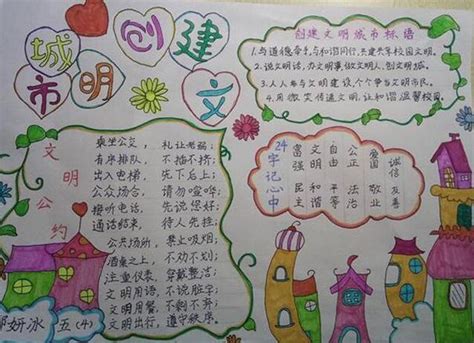 创建文明城市
创建文明城市标语
1.与道德牵手,与和谐同行,共建共享校园文明。
2.说文明话,办文明事,做文明人,创文明城。
3.人人参与文明建设,个个争当文明市民。
4.用微笑传递文明,让和谐温馨校园。
文明公约
乘坐公交，礼让老弱；
有序排队，不插不挤；
出入电梯，先下后上；
公众场合，请勿喧哗；
接听电话，先说您好；
通话结束，待人先挂；
公共场所，禁止吸烟；
酒桌之上，不劝不划；
注重仪表，穿戴整洁；
文明用语，不说脏字；
文明用餐，不剩不弃；
文明出行，遵守秩序。
24字记心中
富强 民主
文明 和谐
自由 平等
公正 法治
爱国 敬业
诚信 友善
妍冰 五(4)